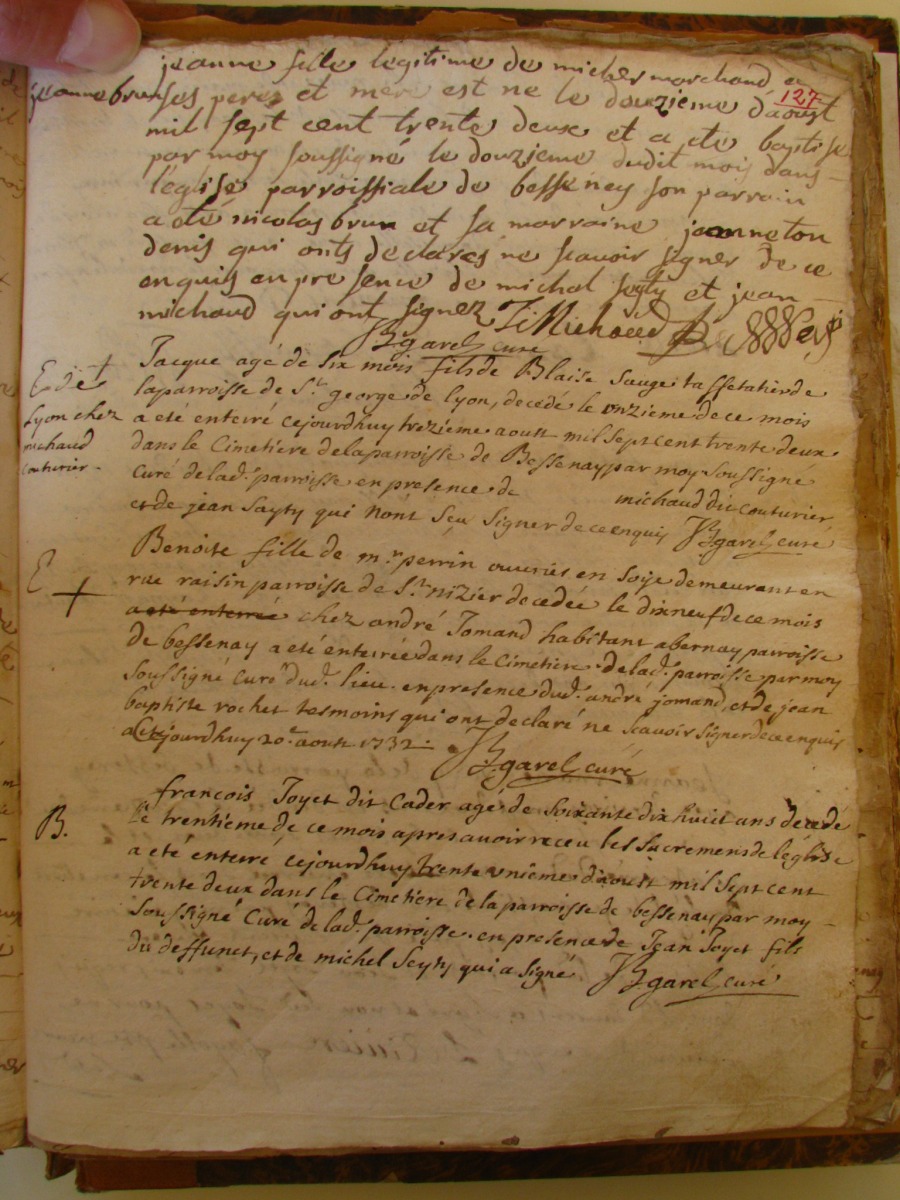 127
jeanne fille legitime de michel marchand et
jeanne brun ses peres et mere est ne le douzieme d'aoust
mil sept cent trente deux et a ete baptise
par moy soussigné le douzieme dudit mois dans
l'eglise parroissiale de bessenay son parrain
a eté nicolas brun et sa marraine jeanneton
denis qui onts declarés ne scavoir signer de ce
enquis en presence de michal seyty et jean
michaud qui ont signez J Michaud
JB garel curé
E det
Lyon chez
michaud
couturier
Jacque agé de six mois fils de Blaise Sauge taffetatier de
la parroisse de St. george de Lyon, decedé le onzieme de ce mois
a eté enterré cejourdhuy trezieme aoust mil sept cent trente deux
dans le Cimetiére de la parroisse de Bessenay par moy soussigné
curé de lad. parroisse en presence de michaud dit couturier
et de jean Sayty qui n'ont sçu signer de ce enquis JB garel curé
E
Benoite fille de mr. perrin ouvriés en soÿe demeurant en
rue raisin parroisse de St. nizier decedée le dixneuf de ce mois
a eté enterrée chez andré Jomand habitant a bernay parroisse
de bessenay a eté enterrée dans le Cimetiére de lad. parroisse par moy
soussigné curé dud. lieu. en presence dud. andré jomand, et de jean
baptiste rochet tesmoins qui ont declaré ne scavoir signer de ce enquis
a Cejourdhuy 20e. aoust 1732.
JB garel curé
B.
françois Joyet dit Cader agé de soixante dix huit ans decedé
le trentiéme de ce mois apres avoir receu les sacremens de léglise
a eté enterré cejourdhuy trente unieme d'aoust mil sept cent
trente deux dans le Cimetiére de la parroisse de bessenay par moy
soussigné Curé de lad. parroisse. en presence de Jean Joyet fils
du deffunct, et de michel Seyty qui a signé JB garel curé